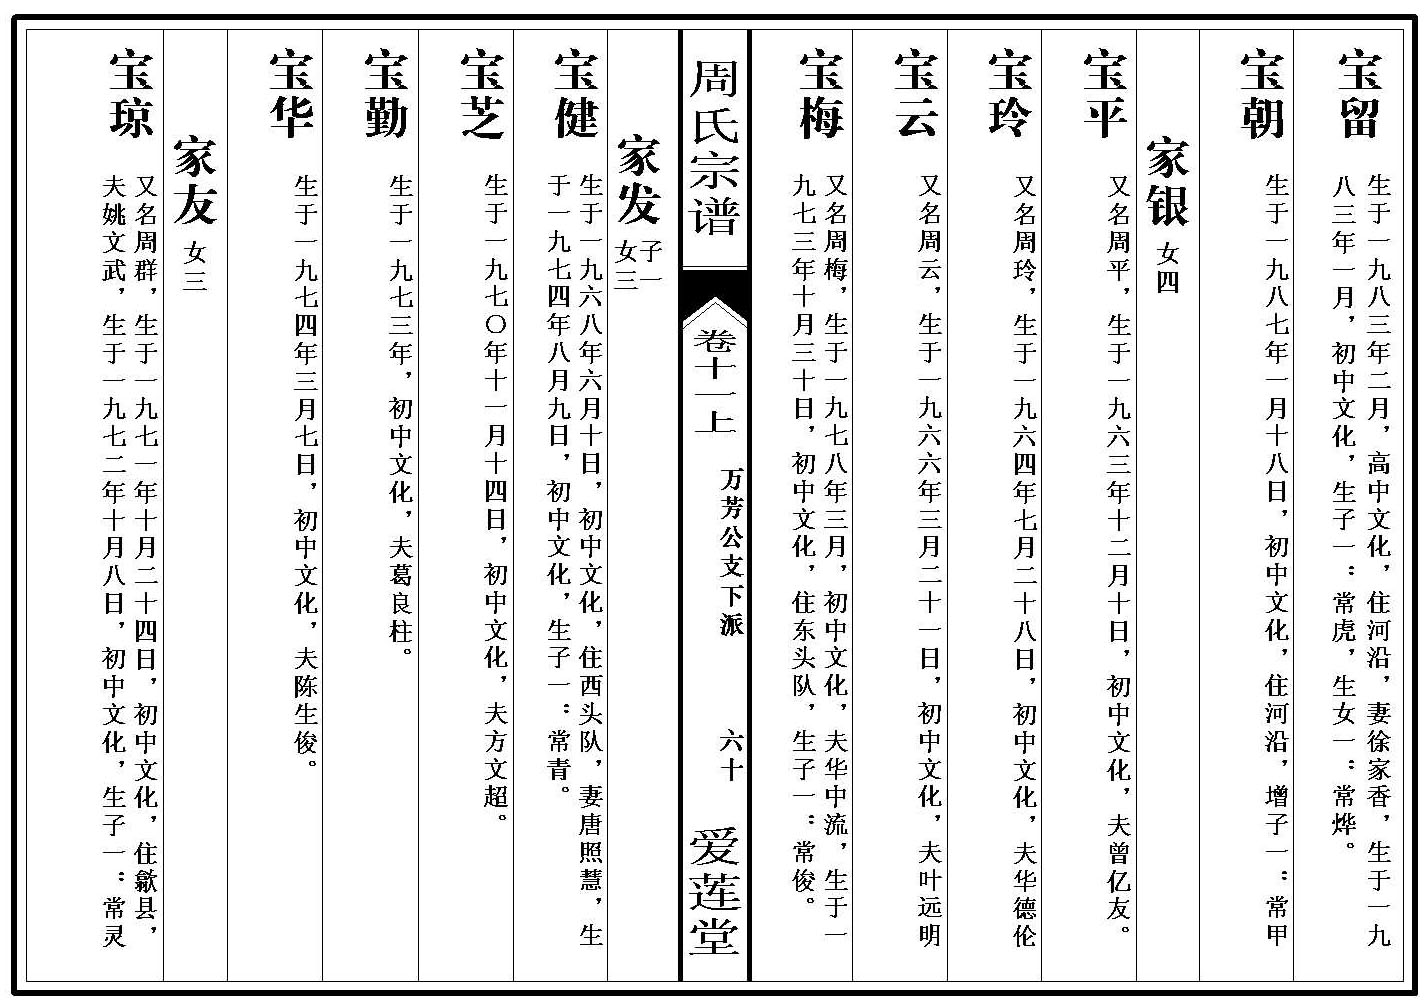 宝留
生于一九八三年二月，高中文化，住河沿，妻徐家香，生于一九
八三年一月，初中文化，生子一：常虎，生女一：常烨。
宝朝
生于一九八七年一月十八日，初中文化，住河沿，增子一：常甲
家银
女四
宝平
又名周平，生于一九六三年十二月十日，初中文化，夫曾亿友。
宝玲
又名周玲，生于一九六四年七月二十八日，初中文化，夫华德伦
宝云
又名周云，生于一九六六年三月二十一日，初中文化，夫叶远明
宝梅
又名周梅，生于一九七八年三月，初中文化，夫华中流，生于一
九七三年十月三十日，初中文化，住东头队，生子一：常俊。
周氏宗谱
卷十一上
万芳公支下派
六十
爱莲堂
家发
子一
女三
宝健
生于一九六八年六月十日，初中文化，住西头队，妻唐照慧，生
于一九七四年八月九日，初中文化，生子一：常青。
宝芝
生于一九七〇年十一月十四日，初中文化，夫方文超。
宝勤
生于一九七三年，初中文化，夫葛良柱。
宝华
生于一九七四年三月七日，初中文化，夫陈生俊。
家友
女三
宝琼
又名周群，生于一九七一年十月二十四日，初中文化，住歙县，
夫姚文武，生于一九七二年十月八日，初中文化，生子一：常灵